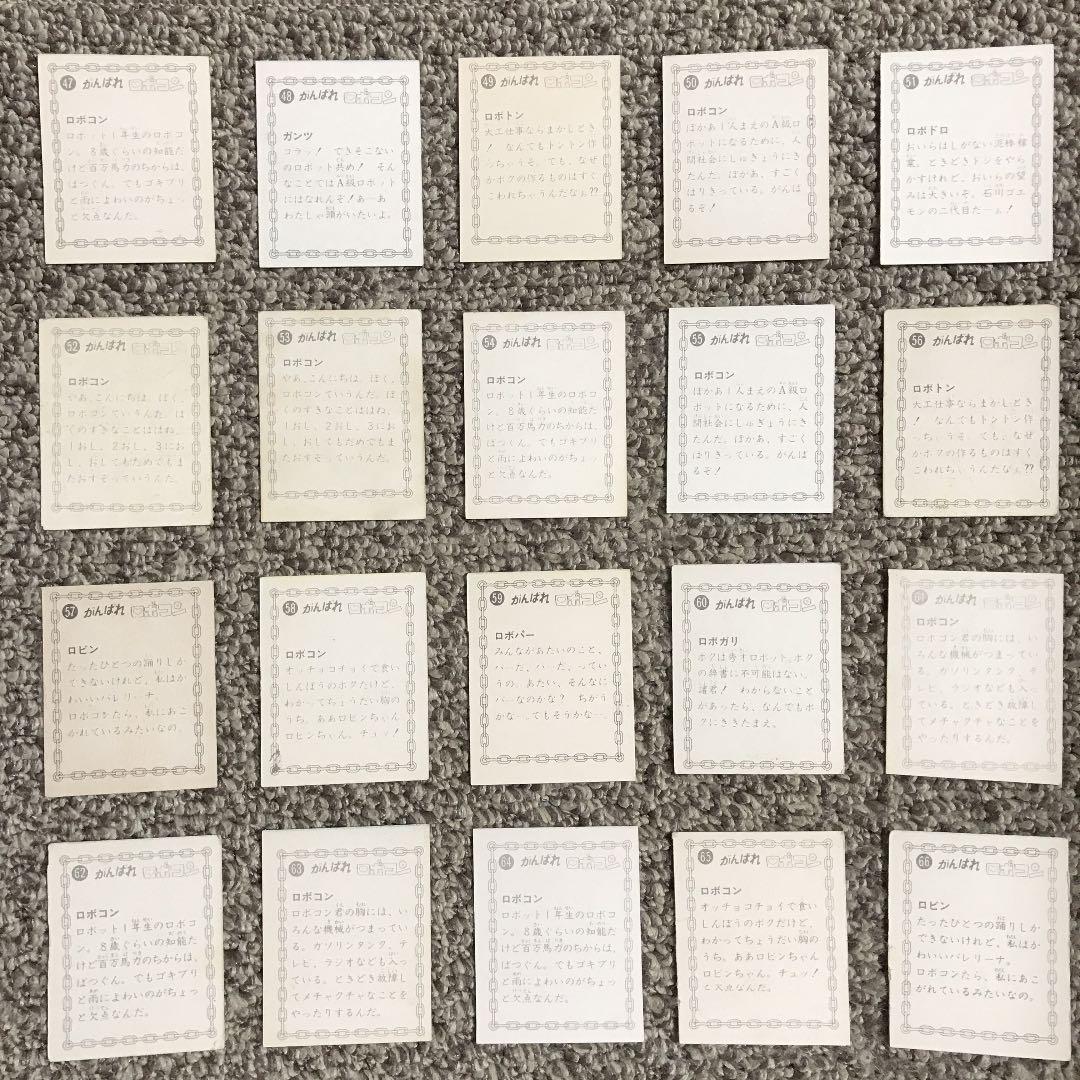 47 がんばれ ロボコン
ロボコン
ロボット1年生のロボコ
ン。8歳ぐらいの知能だ
けど百万馬力のちからは、
ばつぐん。でもゴキブリ
と雨によわいのがちょっ
と欠点なんだ。
48 がんばれ ロボコン
ガンツ
コラッ! できそこない
のロボット共め! そん
なことではA級ロボット
にはなれんぞ!あーあ
わたしゃ頭がいたいよ。
49 がんばれ ロボコン
ロボトン
大工仕事ならまかしとき
! なんでもトントン作
っちゃうぞ。でも、なぜ
かボクの作るものはすぐ
こわれちゃうんだなぁ??
50 がんばれ ロボコン
ロボコン
ぼかあ1人まえのA級ロ
ボットになるために、人
間社会にしゅぎょうにき
たんだ。ぼかあ、すごく
はりきっている。がんば
るぞ!
51 がんばれ ロボコン
ロボドロ
おいらはしがない泥棒稼
業。ときどきドジをやら
かすけれど、おいらの望
みは大きいぞ。石川ゴエ
モンの二代目だーぁ!
52 がんばれ ロボコン
ロボコン
やあ、こんにちは。ぼく、
ロボコンていうんだ。ぼ
くのすきなことはね、
1おし、2おし、3にお
し、おしてもだめでもま
たおすぞっていうんだ。
53 がんばれ ロボコン
ロボコン
やあ、こんにちは。ぼく、
ロボコンていうんだ。ぼ
くのすきなことははね、
1おし、2おし、3にお
し、おしてもだめでもま
たおすぞっていうんだ。
54 がんばれ ロボコン
ロボコン
ロボット1年生のロボコ
ン。8歳ぐらいの知能だ
けど百万馬力のちからは、
ばつぐん。でもゴキブリ
と雨によわいのがちょっ
と欠点なんだ。
55 がんばれ ロボコン
ロボコン
ぼかあ1人まえのA級ロ
ボットになるために、人
間社会にしゅぎょうにき
たんだ。ぼかあ、すごく
はりきっている。がんば
るぞ!
56 がんばれ ロボコン
ロボトン
大工仕事ならまかしとき
! なんでもトントン作
っちゃうぞ。でも、なぜ
かボクの作るものはすぐ
こわれちゃうんだなぁ??
57 がんばれ ロボコン
ロビン
たったひとつの踊りしか
できないけれど、私はか
わいいバレリーナ。
ロボコンたら、私にあこ
がれているみたいなの。
58 がんばれ ロボコン
ロボコン
オッチョコチョイで食い
しんぼうのボクだけど、
わかってちょうだい胸の
うち、ああロビンちゃん
ロビンちゃん。チュッ!
59 がんばれ ロボコン
ロボパー
みんながあたいのこと、
パーだ、パーだ、ってい
うの。あたい、そんなに
パーなのかな? ちがう
かな…。でもそうかな…。
60 がんばれ ロボコン
ロボガリ
ボクは秀才ロボット。ボク
の辞書に不可能はない。
諸君! わからないこと
があったら、なんでもボ
クにききたまえ。
61 がんばれ ロボコン
ロボコン
ロボコン君の胸には、い
ろんな機械がつまってい
る。ガソリンタンク、テ
レビ、ラジオなども入っ
ている。ときどき故障し
てメチャクチャなことを
やったりするんだ。
62 がんばれ ロボコン
ロボコン
ロボット1年生のロボコ
ン。8歳ぐらいの知能だ
けど百万馬力のちからは、
ばつぐん。でもゴキブリ
と雨によわいのがちょっ
と欠点なんだ。
63 がんばれ ロボコン
ロボコン
ロボコン君の胸には、い
ろんな機械がつまってい
る。ガソリンタンク、テ
レビ、ラジオなども入っ
ている。ときどき故障し
てメチャクチャなことを
やったりするんだ。
64 がんばれ ロボコン
ロボコン
ロボット1年生のロボコ
ン。8歳ぐらいの知能だ
けど百万馬力のちからは、
ばつぐん。でもゴキブリ
と雨によわいのがちょっ
と欠点なんだ。
65 がんばれ ロボコン
ロボコン
オッチョコチョイで食い
しんぼうのボクだけど、
わかってちょうだい胸の
うち、ああロビンちゃん
ロビンちゃん。チュッ!
と欠点なんだ。
66 がんばれ ロボコン
ロビン
たったひとつの踊りしか
できないけれど、私はか
わいいバレリーナ。
ロボコンたら、私にあこ
がれているみたいなの。